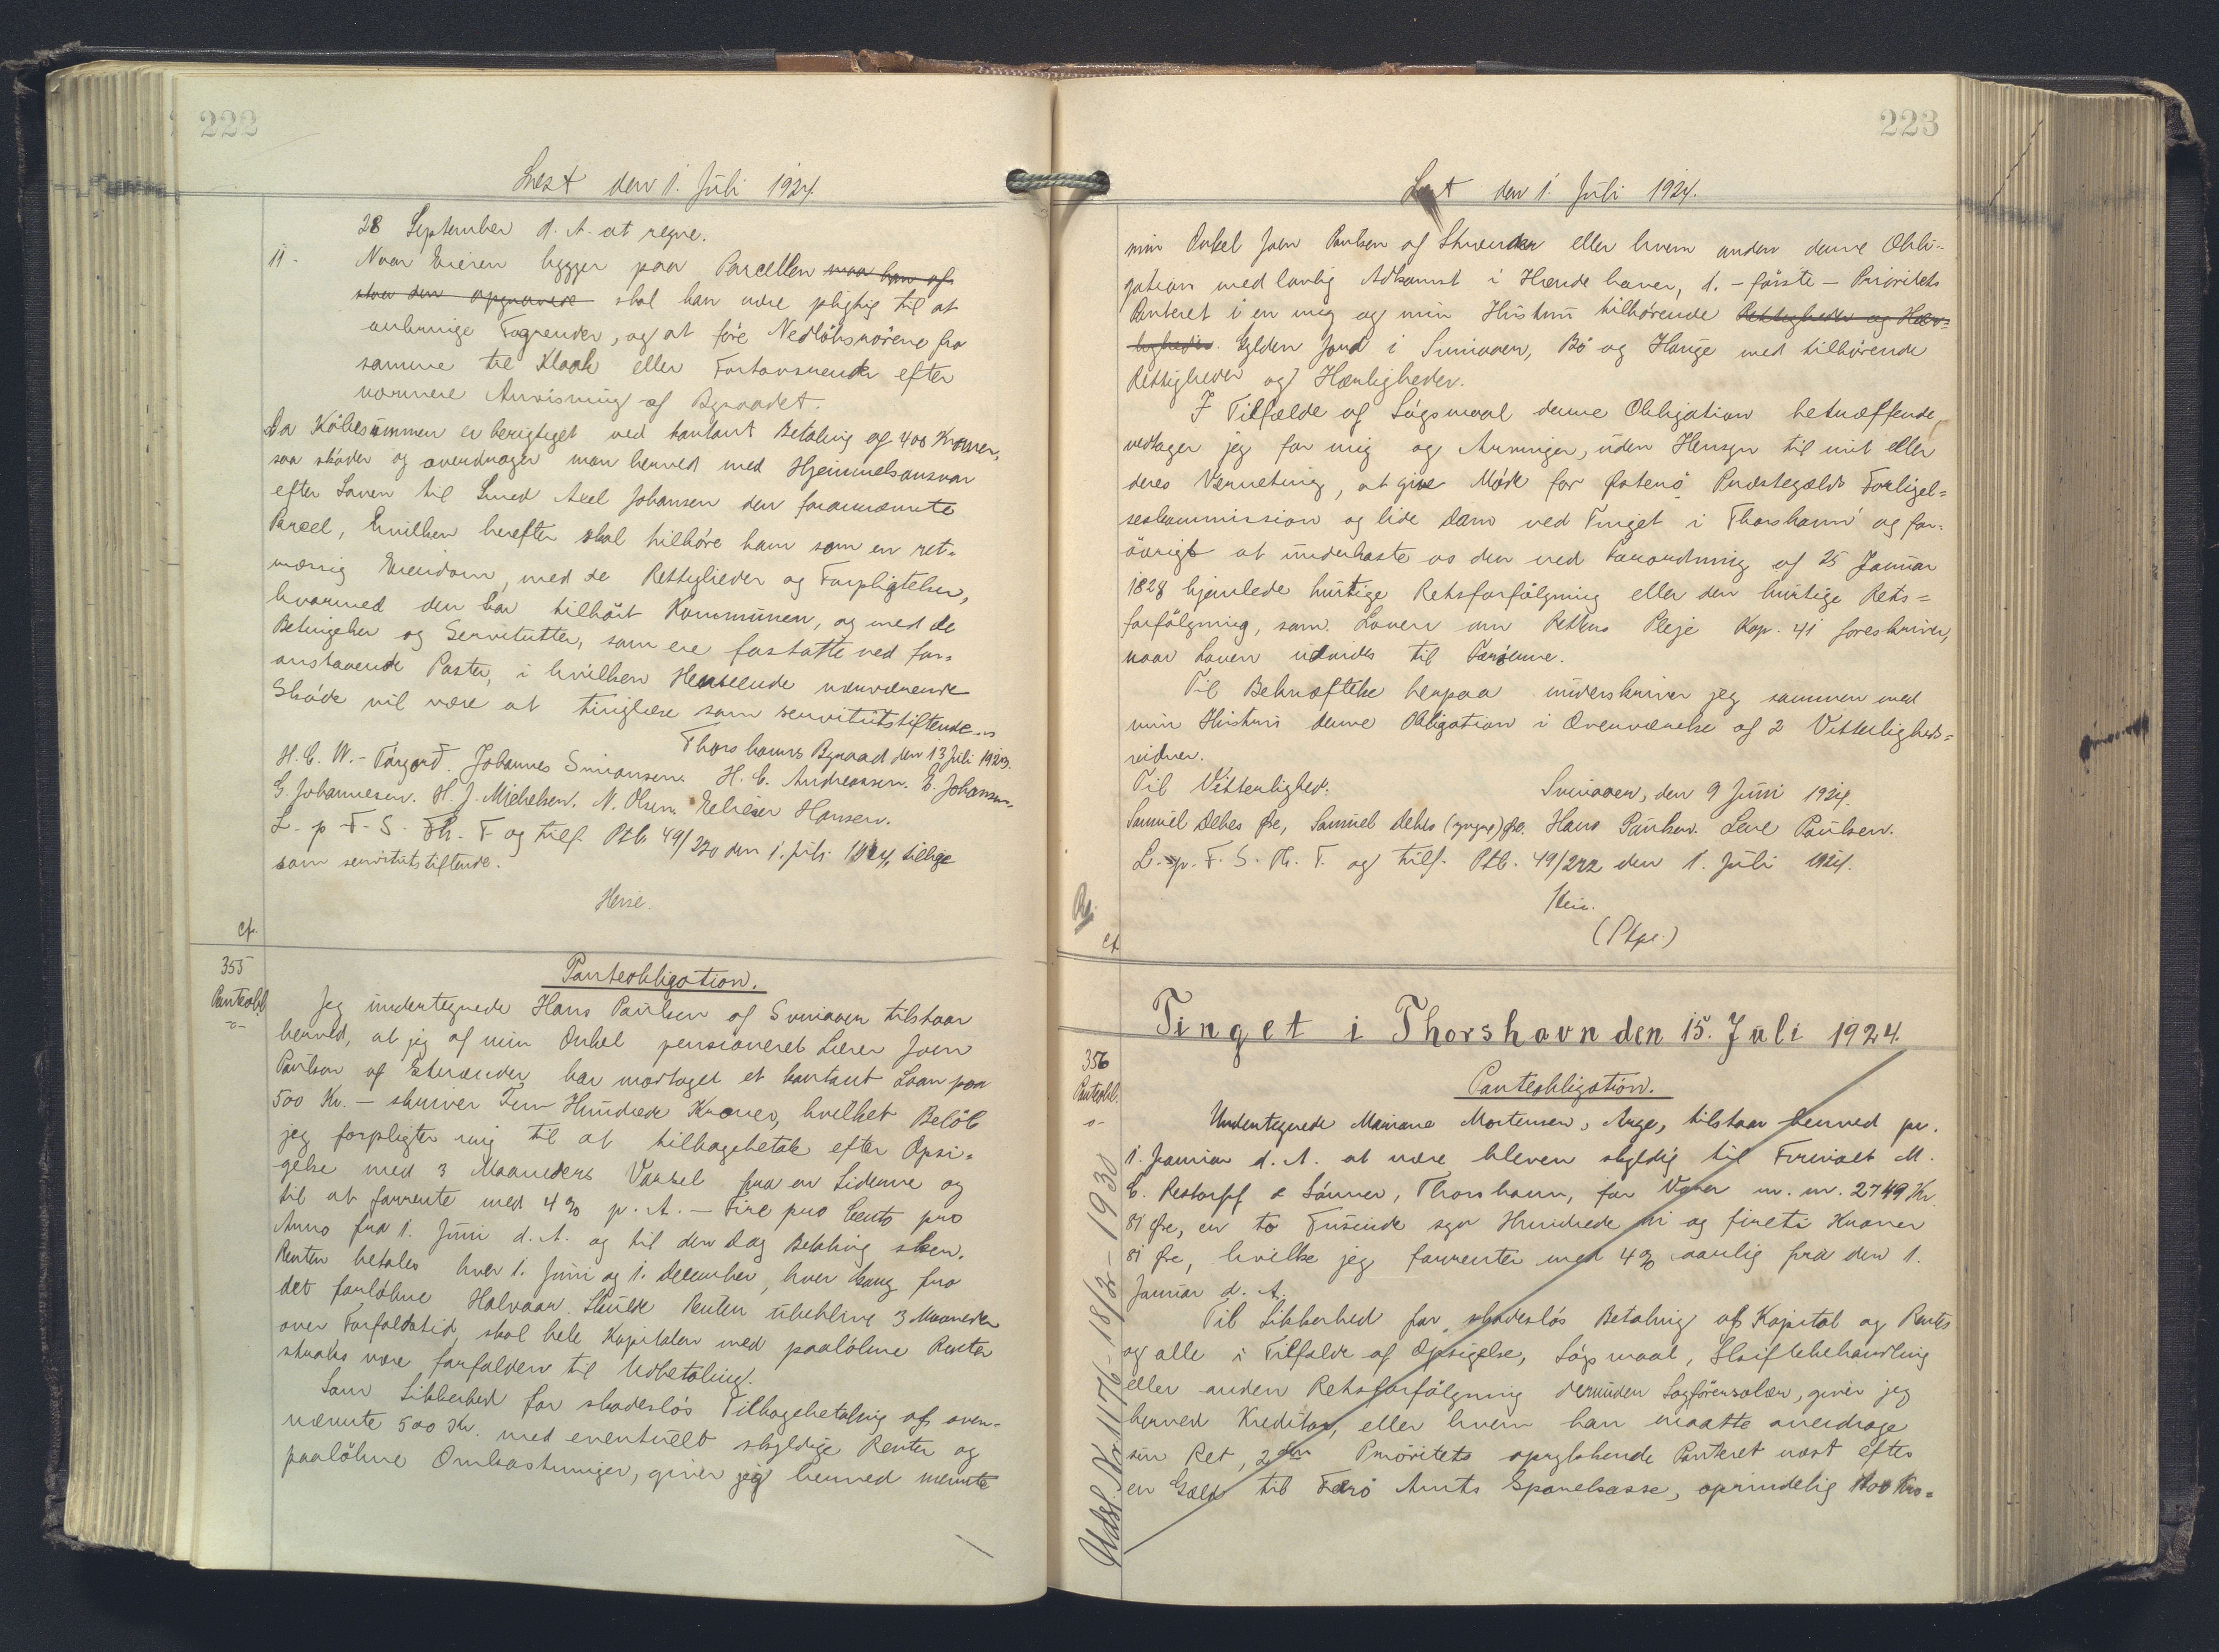 222
Læst den 1. Juli 1924.
28 September d. A. at regne.
11 -
Naar Eieren bygger paa Parcellen maa han af-
staa den opgravede skal han være pligtig til at
anbringe Tagrender, og at före Nedlöbsrörene fra
samme til Kloak eller Fortovsrende efter
nærmere Anvisning af Byraadet.
Da Köbesummen er berigtiget ved kontant Betaling af 400 Kroner,
saa skøder og overdrager man herved med Hjemmelsansvar
efter Loven til Smed Axel Johansen den forannævnte
Parcel, hvilken herefter skal tilhöre ham som en ret-
mæssig Eiendom, med de Rettigheder og Forpligtelser,
hvormed den har tilhört Kommunen, og med de
Betingelser og Servitutter, som ere fastsatte ved for-
anstaaende Poster, i hvilken Henseende nærværende
Skøde vil være at tinglæse som servitutstiftende.
Thorshavns Byraad den 13 Juli 1923.
H. C. W. - Tórgarð. Johannes Simonsen. H. C. Andreassen. E. Johansen.
G. Johannesen. H. J. Michelsen. N. Olsen. Elieser Hansen.
L. p. F. S. Th. T. og tilf. Ptb. 49/220 den 1. Juli 1924, tillige
som servitutstiftende.
cf.
355
Panteobl.
Panteobligation.
Jeg undertegnede Hans Paulsen af Svinaaen tilstaar
herved, at jeg af min Onkel pensioneret Lærer Joen
Paulsen af Strænder har modtaget et kontant Laan paa
500 Kr. - skriver Fem Hundrede Kroner, hvilket Belöb
jeg forpligter mig til at tilbagebetale efter Opsi-
gelse med 3 Maaneders Varsel fra en Siderne og
til at forrente med 4% p. A. - Fire pro Cento pro
Anno fra 1. Juni d. A. og til den Dag Betaling sker.
Renten betales hver 1. Juni og 1. December, hver Gang for
det forlöbne Halvaar. Skulde Renten udeblive 3 Maaneder
over Forfaldstid, skal hele Kapitalen med paalöbne Renter
straks være forfalden til Udbetaling.
Som Sikkerhed for skadeslös Tilbagebetaling af oven-
nævnte 500 Kr. med eventuelt skyldige Renter og
paalöbne Omkostninger, giver jeg herved nævnte
223
Læst den 1. Juli 1924.
min Onkel Joen Paulsen af Strænder eller hvem anden denne Obli-
gation med lovlig Adkomst i Hænde haver, 1. - förste - Prioritets
Panteret i en mig og min Hustru tilhörende Rettigheder og Her-
ligheder. Gylden Jord i Svinaaen, Bö og Hauge med tilhörende
Rettigheder og Herligheder.
I Tilfælde af Sögsmaal denne Obligation betræffende,
vedtager jeg for mig og Arvinger, uden Hensyn til mit eller
deres Værneting, at give Möde for Østerö Præstegælds Forligel-
seskommission og lide Dom ved Tinget i Thorshavn og for-
övrigt at underkaste os den ved Forordning af 25 Januar
1828 hjemlede hurtige Retsforfölgning eller den hurtige Rets-
forfölgning, som Loven om Rettens Pleje Kap. 41 foreskriver,
naar Loven udvides til Færöerne.
Til Bekræftelse herpaa underskriver jeg sammen med
min Hustru denne Obligation i Overværelse af 2 Vitterligheds-
vidner.
Til Vitterlighed:
Svinaaen, den 9 Juni 1924.
Samuel Debes Øre, Samuel Debes (yngre) Øre. Hans Paulsen. Lene Paulsen.
L. p. F. S. Th. T. og tilf. Ptb. 49/222 den 1. Juli 1924.
cf.
Tinget i Thorshavn den 15. Juli 1924.
356
Panteobl.
Panteobligation.
Undertegnede Mariane Mortensen, Arge, tilstaar herved pr.
1. Januar d. A. at være bleven skyldig til Firmaet M.
C. Restorff & Sönner, Thorshavn, for Varer m. m. 2749 Kr.
81 Øre, er to Tusinde syv Hundrede ni og fireti Kroner
81 Øre, hvilke jeg forrenter med 4% aarlig fra den 1.
Januar d. A.
Til Sikkerhed for skadeslös Betaling af Kapital og Renter
og alle i Tilfælde af Opsigelse, Sögsmaal, Skiftebehandling
eller anden Retsforfölgning derunder Sagförersalær, giver jeg
herved Kreditor, eller hvem han maatte overdrage
sin Ret, 2den Prioritets oprykkende Panteret næst efter
en Gæld til Færö Amts Sparekasse, oprindelig Kro-
Udsl. Nr 1176 - 18/2 - 1930